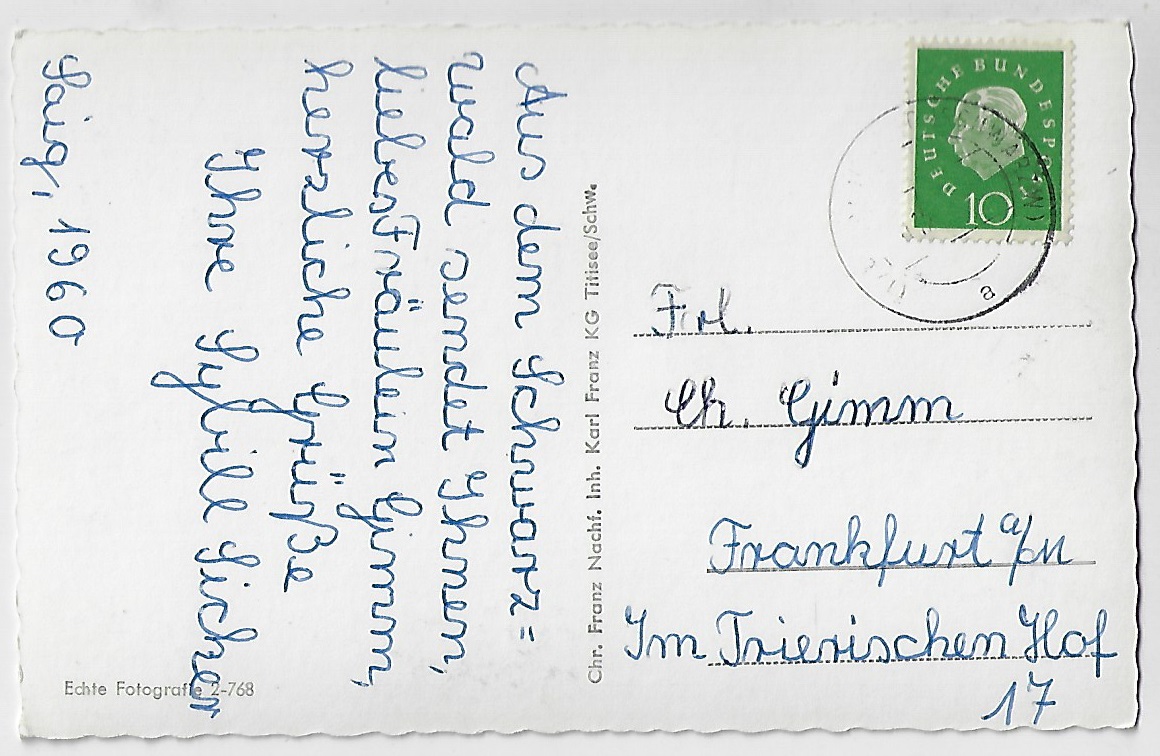 Aus dem Schwarz=
wald sendet Ihnen,
liebes Fräulein Gimm,
herzliche Grüße
Ihre Sybill Sicher
Saig, 1960
Echte Fotografie 2-768
Chr. Franz Nachf. Inh. Karl Franz KG Titisee/Schw.
DEUTSCHE BUNDESPOST
10
a
Frl.
Ch. Gimm
Frankfurt a/M
Im Trierischen Hof
17